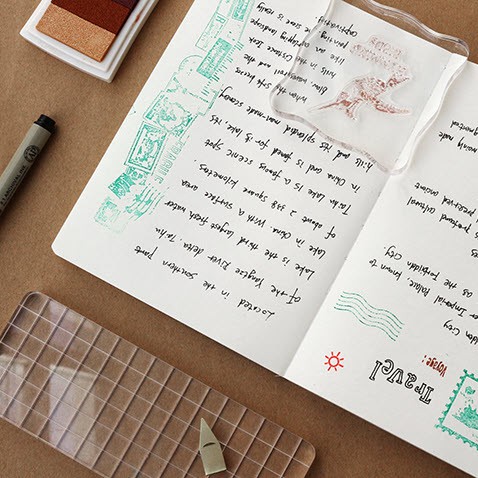 Located in the southern parts
of the Yangtze River delta. Taihu
Lake is the third largest fresh water
lake in China. With a surface area
of about 2 338 square kilometres.
Tai hu Lake is a famous scenic spot
in China and is famed for its lake, its
hills and its splendid man-made scenery.
When the soft breeze
and the
hills in the distance look
like an outlying landscape
painting, the scene is really
captivating.
Travel
Voyage:
City
Imperial Palace, known to
as the Forbidden City.
profound cultural
preserved ancient